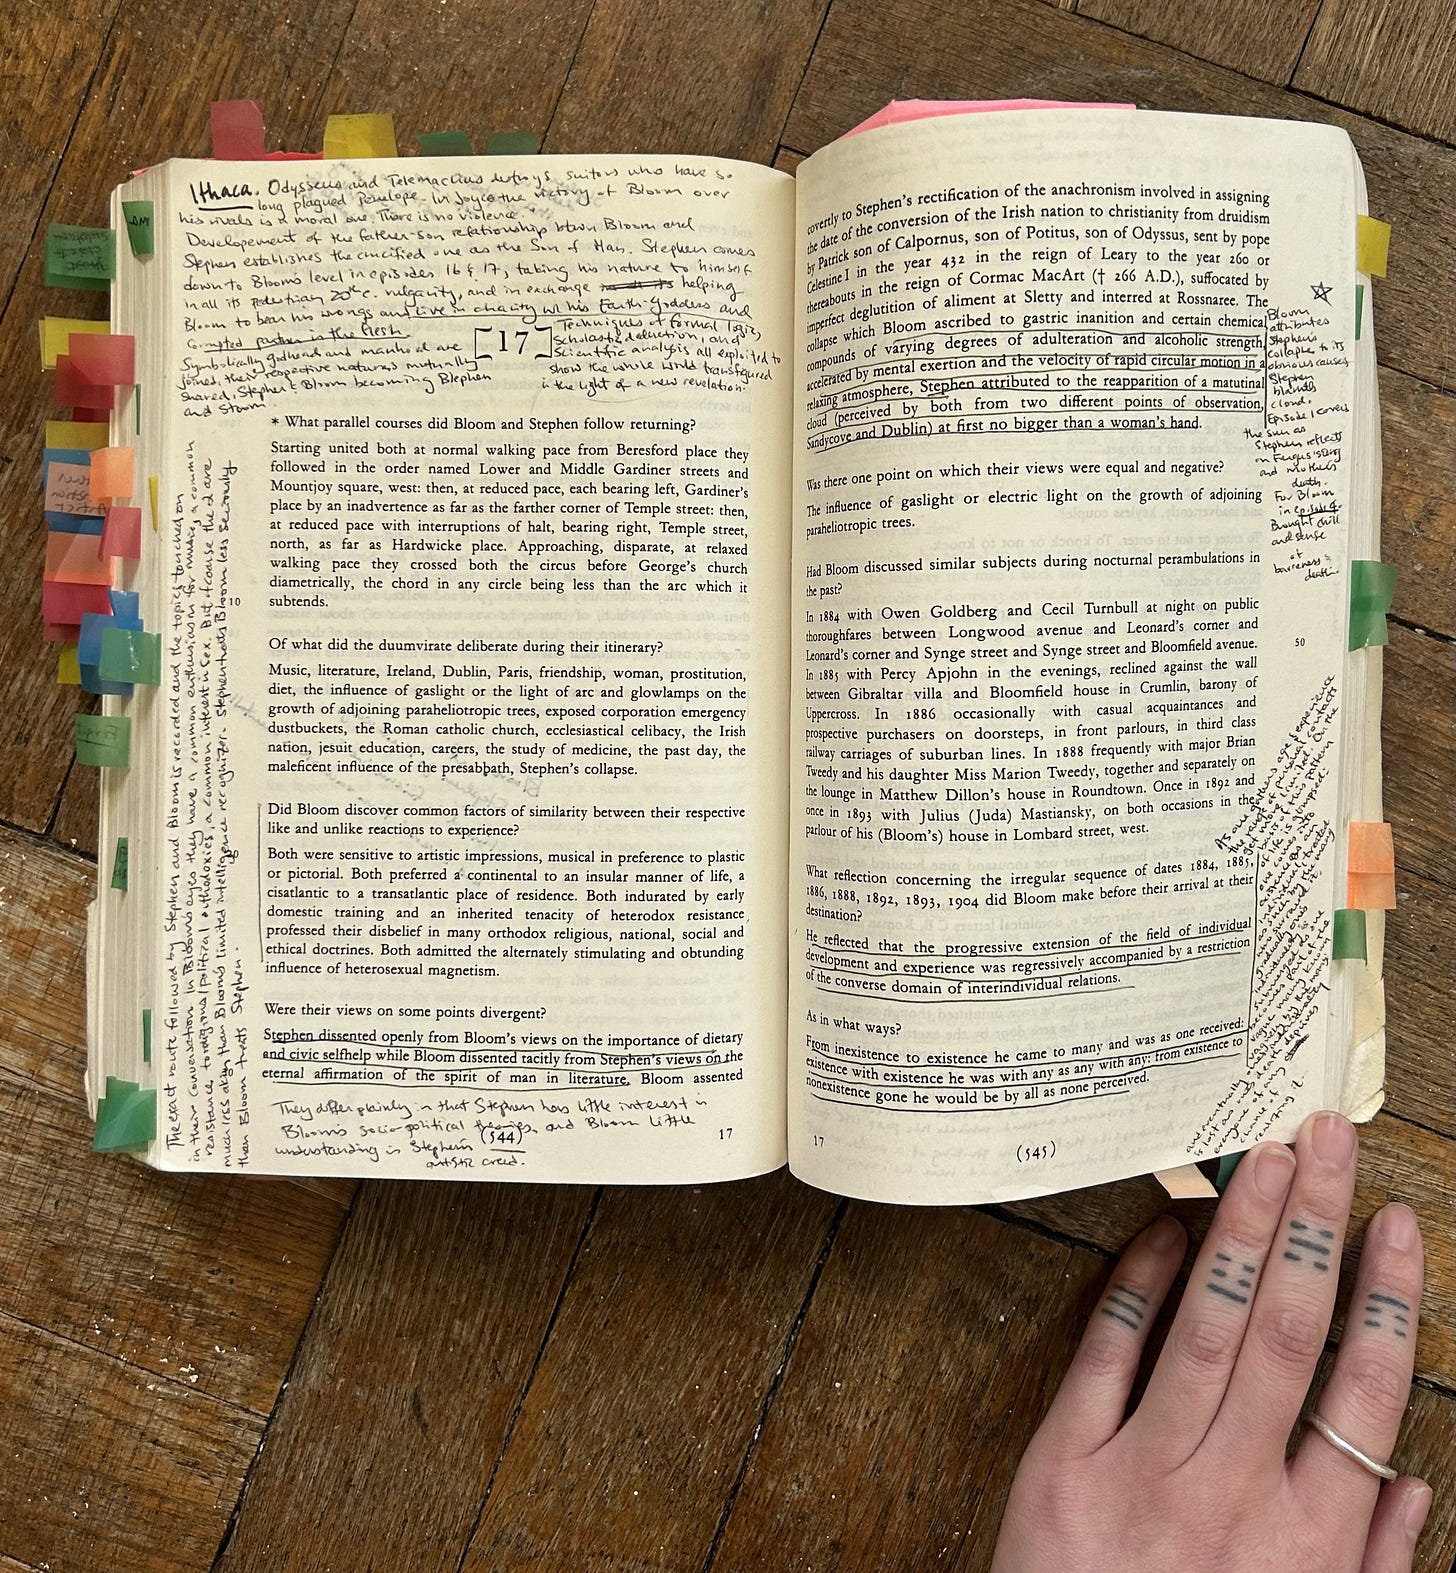 Ithaca. Odysseus and Telemachus destroys suitors who have so
long plagued Penelope. In Joyce the victory of Bloom over
his rivals is a moral one. There is no violence.
Developement of the father-son relationship btwn Bloom and
Stephen establishes the crucified one as the Son of Man. Stephen comes
down to Bloom's level in episodes 16 & 17, taking his nature to himself
in all its pedestrian 20th c. vulgarity, and in exchange helping
Bloom to bear his wrongs and live in charity w/ his Earth-Goddess and
corrupted partner in the flesh.
Symbolically godhead and manhood are
joined, their respective natures mutually
shared, Stephen & Bloom becoming Blephen
and Stoom.
[17]
Techniques of formal logic,
Scholastic deduction, and
Scientific analysis all exploited to
show the whole world transfigured
in the light of a new revelation.
* What parallel courses did Bloom and Stephen follow returning?
Starting united both at normal walking pace from Beresford place they
followed in the order named Lower and Middle Gardiner streets and
Mountjoy square, west: then, at reduced pace, each bearing left, Gardiner's
place by an inadvertence as far as the farther corner of Temple street: then,
at reduced pace with interruptions of halt, bearing right, Temple street,
north, as far as Hardwicke place. Approaching, disparate, at relaxed
walking pace they crossed both the circus before George's church
diametrically, the chord in any circle being less than the arc which it
10 subtends.
Of what did the duumvirate deliberate during their itinerary?
Music, literature, Ireland, Dublin, Paris, friendship, woman, prostitution,
diet, the influence of gaslight or the light of arc and glowlamps on the
growth of adjoining paraheliotropic trees, exposed corporation emergency
dustbuckets, the Roman catholic church, ecclesiastical celibacy, the Irish
nation, jesuit education, careers, the study of medicine, the past day, the
maleficent influence of the presabbath, Stephen's collapse.
Did Bloom discover common factors of similarity between their respective
like and unlike reactions to experience?
Both were sensitive to artistic impressions, musical in preference to plastic
or pictorial. Both preferred a continental to an insular manner of life, a
cisatlantic to a transatlantic place of residence. Both indurated by early
domestic training and an inherited tenacity of heterodox resistance
professed their disbelief in many orthodox religious, national, social and
ethical doctrines. Both admitted the alternately stimulating and obtunding
influence of heterosexual magnetism.
Were their views on some points divergent?
Stephen dissented openly from Bloom's views on the importance of dietary
and civic selfhelp while Bloom dissented tacitly from Stephen's views on the
eternal affirmation of the spirit of man in literature. Bloom assented
They differ plainly in that Stephen has little interest in
Bloom's socio-political theories, and Bloom little
understanding in Stephen's
artistic creed.
(544)
17
The exact route followed by Stephen and Bloom is recorded and the topics touched on
in their conversation. In Bloom's eyes they have a common enthusiasm for music, a common
resistance to religious/political orthodoxies, a common interest in sex. But of course the 2 are
much less align than Bloom's limited intelligence recognizes. Stephen treats Bloom less seriously
than Bloom treats Stephen.
covertly to Stephen's rectification of the anachronism involved in assigning
the date of the conversion of the Irish nation to christianity from druidism
by Patrick son of Calpornus, son of Potitus, son of Odyssus, sent by pope
Celestine I in the year 432 in the reign of Leary to the year 260 or
thereabouts in the reign of Cormac MacArt († 266 A.D.), suffocated by
imperfect deglutition of aliment at Sletty and interred at Rossnaree. The
collapse which Bloom ascribed to gastric inanition and certain chemical
compounds of varying degrees of adulteration and alcoholic strength,
accelerated by mental exertion and the velocity of rapid circular motion in a
relaxing atmosphere, Stephen attributed to the reapparition of a matutinal
cloud (perceived by both from two different points of observation,
Sandycove and Dublin) at first no bigger than a woman's hand.
Was there one point on which their views were equal and negative?
The influence of gaslight or electric light on the growth of adjoining
paraheliotropic trees.
Had Bloom discussed similar subjects during nocturnal perambulations in
the past?
In 1884 with Owen Goldberg and Cecil Turnbull at night on public
thoroughfares between Longwood avenue and Leonard's corner and
Leonard's corner and Synge street and Synge street and Bloomfield avenue. 50
In 1885 with Percy Apjohn in the evenings, reclined against the wall
between Gibraltar villa and Bloomfield house in Crumlin, barony of
Uppercross. In 1886 occasionally with casual acquaintances and
prospective purchasers on doorsteps, in front parlours, in third class
railway carriages of suburban lines. In 1888 frequently with major Brian
Tweedy and his daughter Miss Marion Tweedy, together and separately on
the lounge in Matthew Dillon's house in Roundtown. Once in 1892 and
once in 1893 with Julius (Juda) Mastiansky, on both occasions in the
parlour of his (Bloom's) house in Lombard street, west.
What reflection concerning the irregular sequence of dates 1884, 1885,
1886, 1888, 1892, 1893, 1904 did Bloom make before their arrival at their
destination?
He reflected that the progressive extension of the field of individual
development and experience was regressively accompanied by a restriction
of the converse domain of interindividual relations.
As in what ways?
From inexistence to existence he came to many and was as one received:
existence with existence he was with any as any with any: from existence to
nonexistence gone he would be by all as none perceived.
17
(545)
Bloom
attributes
Stephen's
collapse to its
obvious causes,
Stephen
blames
cloud.
Episode 1 covers
the sun as
Stephen reflects
on Fergus' song
and mother's
death.
For Bloom
in episode 4
Brought chill
and sense
of
bareness &
death.
As one gathers age & experience
the range of personal contacts